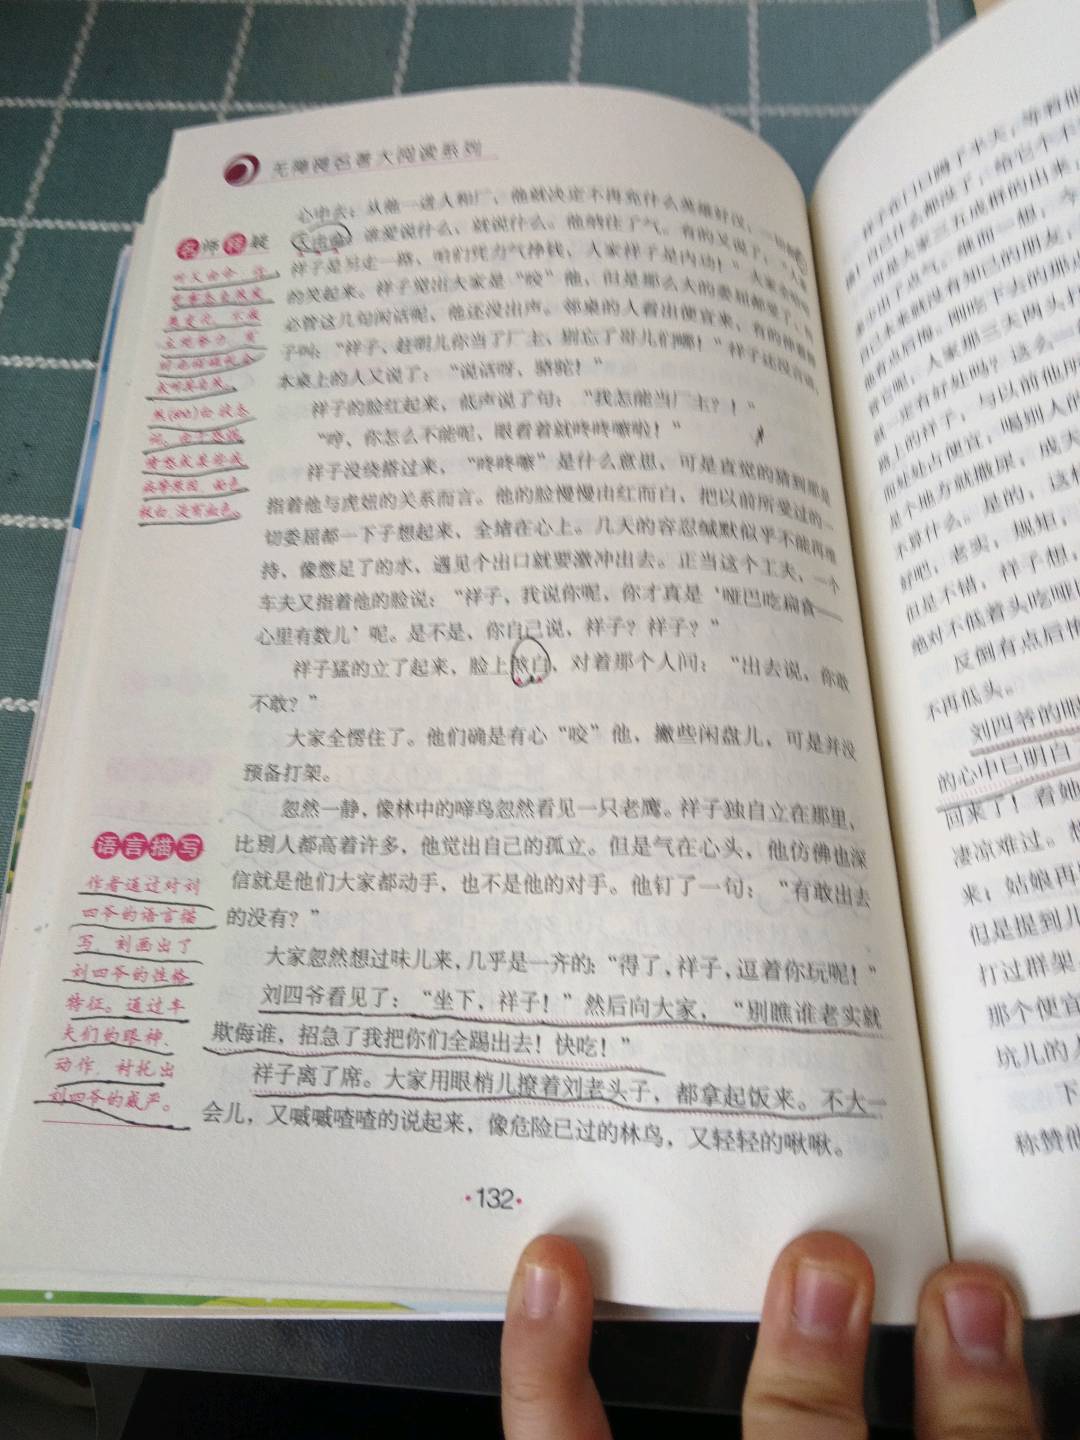 无障碍名著大阅读系列
心中去；从他一进人和厂，他就决定不再充什么英雄好汉，一切
谁爱说什么，就说什么。他纳住了气。有的又说了：“人家
祥子是另走一路，咱们凭力气挣钱，人家祥子是内功！”大家
的笑起来。祥子觉出大家是“咬”他，但是那么大的委屈都受了，何
必管这几句闲话呢，他还没出声。邻桌的人看出便宜来，有的伸着脖
子叫：“祥子，赶明儿你当了厂主，别忘了哥儿们哪！”祥子还没言语，
本桌上的人又说了：“说话呀，骆驼！”
祥子的脸红起来，低声说了句：“我怎能当厂主？！”
“哼，你怎么不能呢，眼看着就咚咚嚓啦！”
祥子没绕搭过来，“咚咚嚓”是什么意思，可是直觉的猜到那是
指着他与虎妞的关系而言。他的脸慢慢由红而白，把以前所受过的一
切委屈都一下子想起来，全堵在心上。几天的容忍缄默似乎不能再维
持，像憋足了的水，遇见个出口就要激冲出去。正当这个工夫，一个
车夫又指着他的脸说：“祥子，我说你呢，你才真是‘哑巴吃扁食——
心里有数儿’呢。是不是，你自己说，祥子？祥子？”
祥子猛的立了起来，脸上煞白，对着那个人问：“出去说，你敢
不敢？”
大家全愣住了。他们确是有心“咬”他，撇些闲盘儿，可是并没
预备打架。
忽然一静，像林中的啼鸟忽然看见一只老鹰。祥子独自立在那里，
比别人都高着许多，他觉出自己的孤立。但是气在心头，他仿佛也深
信就是他们大家都动手，也不是他的对手。他钉了一句：“有敢出去
的没有？”
大家忽然想过味儿来，几乎是一齐的：“得了，祥子，逗着你玩呢！”
刘四爷看见了：“坐下，祥子！”然后向大家，“别瞧谁老实就
欺侮谁，招急了我把你们全踢出去！快吃！”
祥子离了席。大家用眼梢儿撩着刘老头子，都拿起饭来。不大一
会儿，又嘁嘁喳喳的说起来，像危险已过的林鸟，又轻轻的啾啾。
名师释疑
听天由命：任
煞(shà)白：状态
词。由于恐惧、
愤怒或某些疾
病等原因，面色
极白，没有血色。
语言描写
作者通过对刘
四爷的语言描
写，刻画出了
刘四爷的性格
特征。通过车
夫们的眼神、
动作，衬托出
刘四爷的威严。
·132·
祥子在门口蹲了半天，等着他
有点后悔。刚吃下去的那点
就一定有好处吗？这么一
路上的祥子，与以前他所
而处处占便宜，喝别人的
是个地方就撒尿，成天
不算什么。是的，这样
好吧，老实，规矩，
但是不错，祥子想，
绝对不低着头吃哑巴
反倒有点后悔
不再低头。
刘四爷的眼
的心中已明白了
回来了！看她
凄凉难过。想
来；姑娘再
但是提到儿
打过群架
那个便宜
坑儿的人
下
称赞他